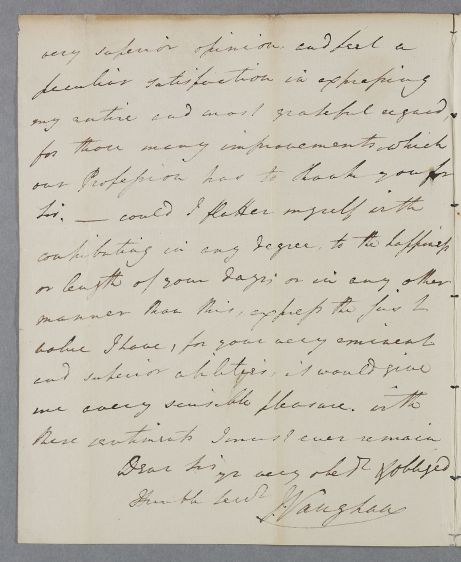 very superior opinion. and feel a
peculiar satisfaction in expressing
my entire and most grateful regard
for those many improvements which
our Profession has to thank you for
Sir. — could I flatter myself with
contributing in any degree, to the happiness
or length of your days or in any other
manner than this, express the just
value I have, for your very eminent
and superior abilities, it would give
me a very sensible pleasure. with
these sentiments I must ever remain
Dear Sir yr very obedt & obliged
Humble servt J Vaughan